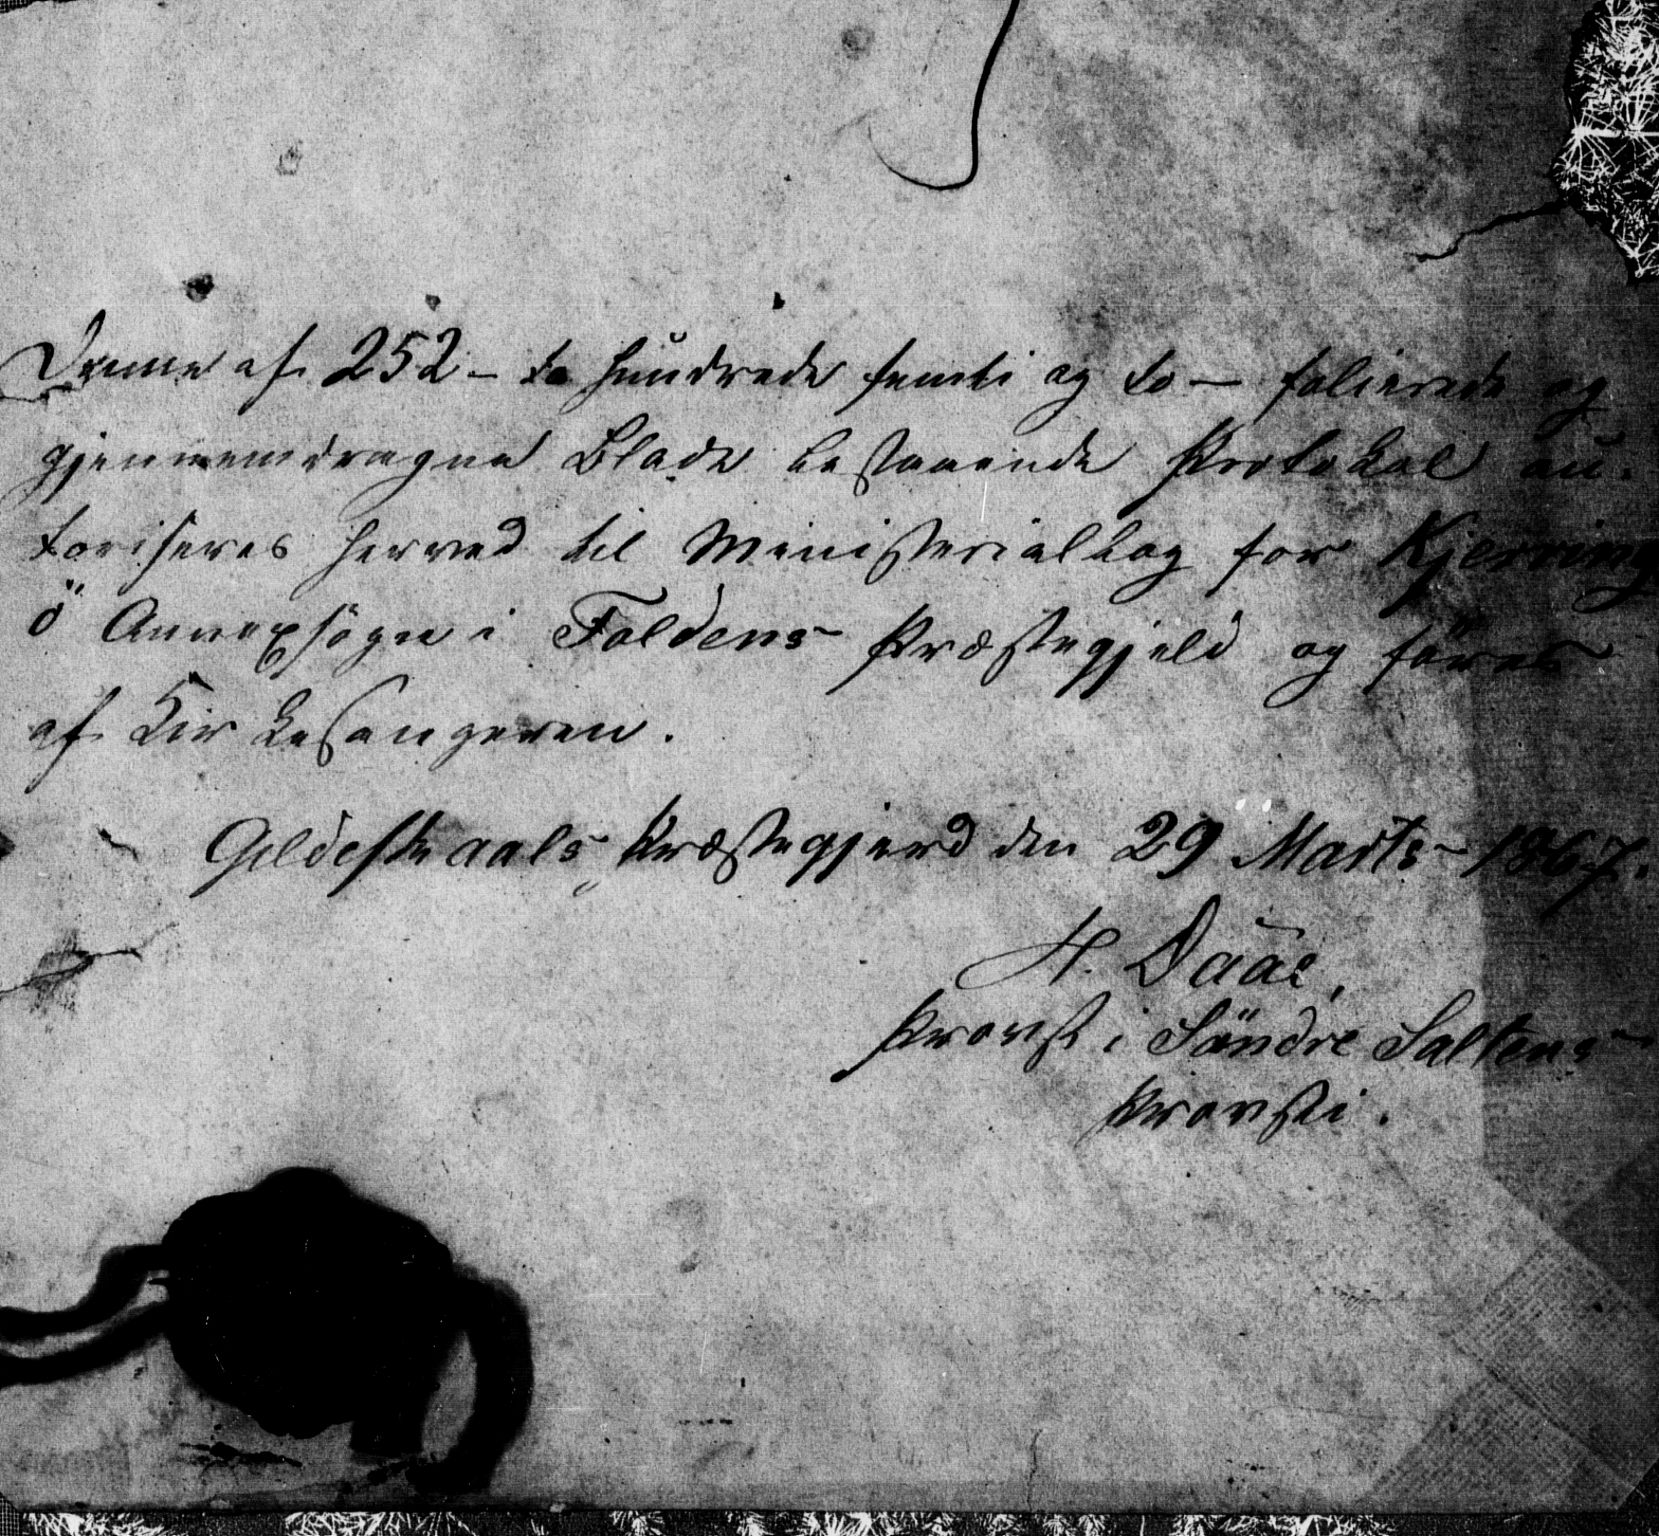 Denne af 252 – to hundrede femti og to – folierede og
gjennemdragne Blade bestaaende Protokol au-
toriseres herved til Ministerialbog for Kjerring
ö Annexsögn i Foldens Præstegjeld og föres
af Kirkesangeren.
Gildeskaals Præstegjerd den 29 Marts 1867.
H. Daae,
Provst i Söndre Saltens
Provsti.